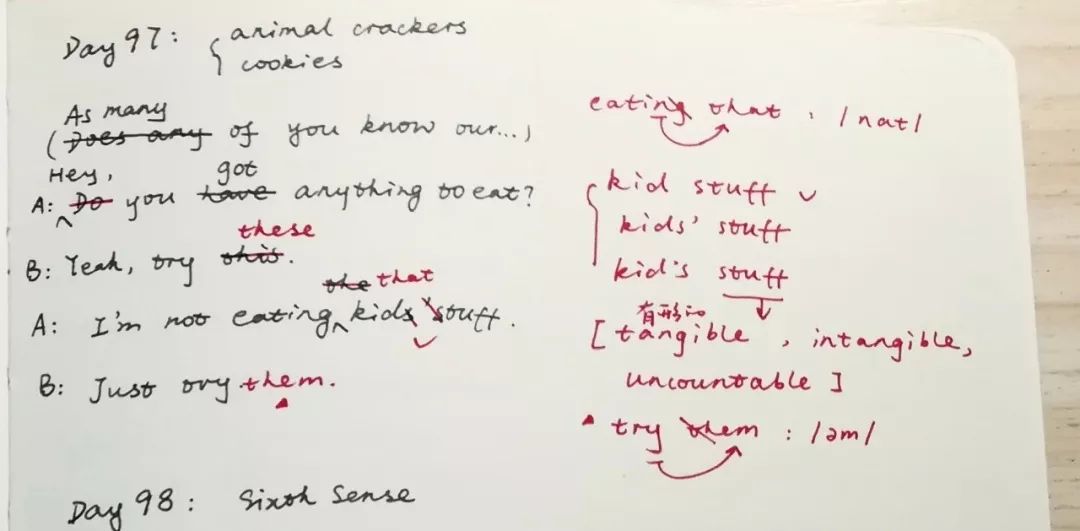 Day 97: { animal crackers
cookies
As many
(Does any of you know our...)
Hey, got
A: Do you have anything to eat?
these
B: Yeah, try this.
the that
A: I'm not eating kids stuff.
B: Just try them.
Day 98: Sixth Sense
eating that . /nat/
kid stuff ✓
kids' stuff
kid's stuff
有形的
[tangible, intangible,
uncountable]
try them : /əm/